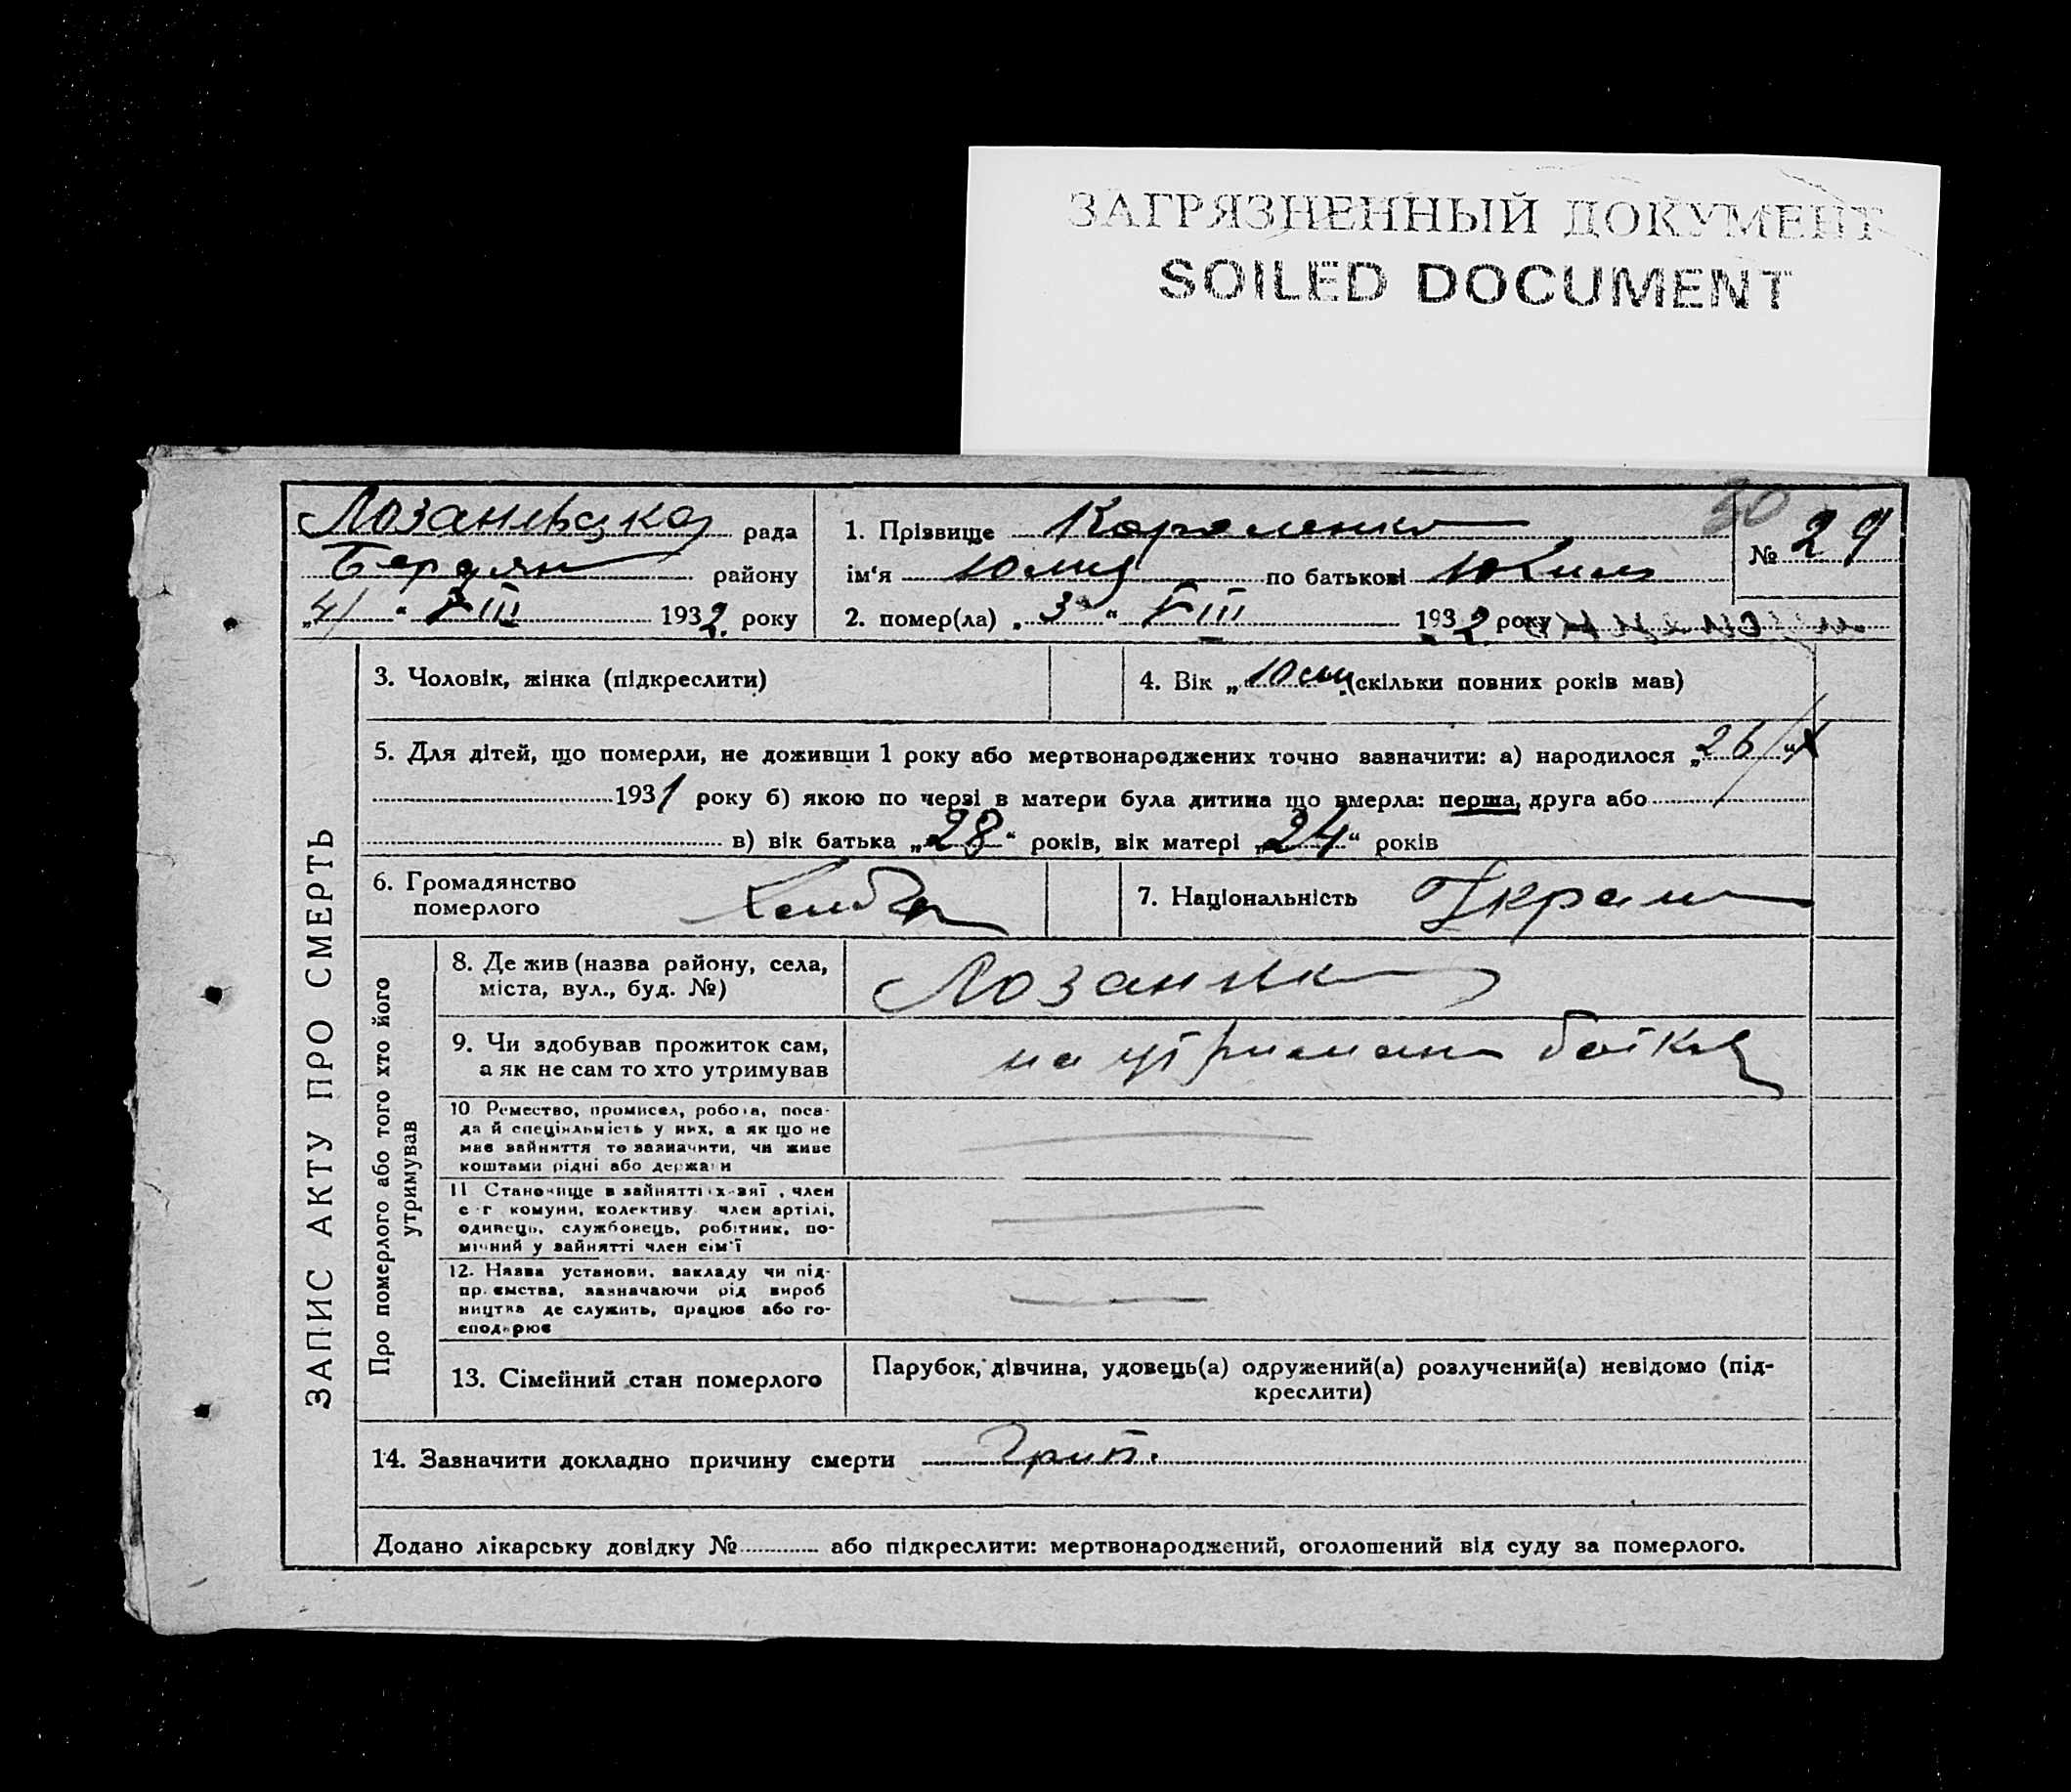 ЗАГРЯЗНЕННЫЙ ДОКУМЕНТ
SOILED DOCUMENT
30
рада
Бердян району
„4/“ VIII 1932 року
1. Прізвище Короленко
ім‘я Юлид по батькові
2. помер(ла) „3“ VIII 1932 року
№ 29
ЗАПИС АКТУ ПРО СМЕРТЬ
3. Чоловік, жінка (підкреслити)
4. Вік „10 “ (скільки повних років мав)
5. Для дітей, що померли, не доживши 1 року або мертвонароджених точно зазначити: а) народилося „26/ІХ
1931 року б) якою по черзі в матери була дитина що вмерла: перша, друга або
в) вік батька „28“ років, вік матері „24“ років
6. Громадянство
померлого
7. Національність Україн
Про померлого або того хто його
утримував
8. Де жив (назва району, села,
міста, вул., буд. №)
9. Чи здобував прожиток сам,
а як не сам то хто утримував
на утриман батька
10 Ремество, промисел, робота, поса-
да й спеціяльність у них, а як що не
має зайняття то зазначити, чи живе
коштами рідні або держави
11 Становище в зайнятті , член
с-г комуни, колективу член артілі,
одинець, службовець, робітник, по-
мічний у зайнятті член сім‘ї
12. Назва установи, закладу чи під-
приємства, зазначаючи рід вироб
ництва де служить, працює або го-
сподарює
13. Сімейний стан померлого
Парубок, дівчина, удовець(а) одружений(а) розлучений(а) невідомо (під-
креслити)
14. Зазначити докладно причину смерти Грип.
Додано лікарську довідку № або підкреслити: мертвонароджений, оголошений від суду за померлого.